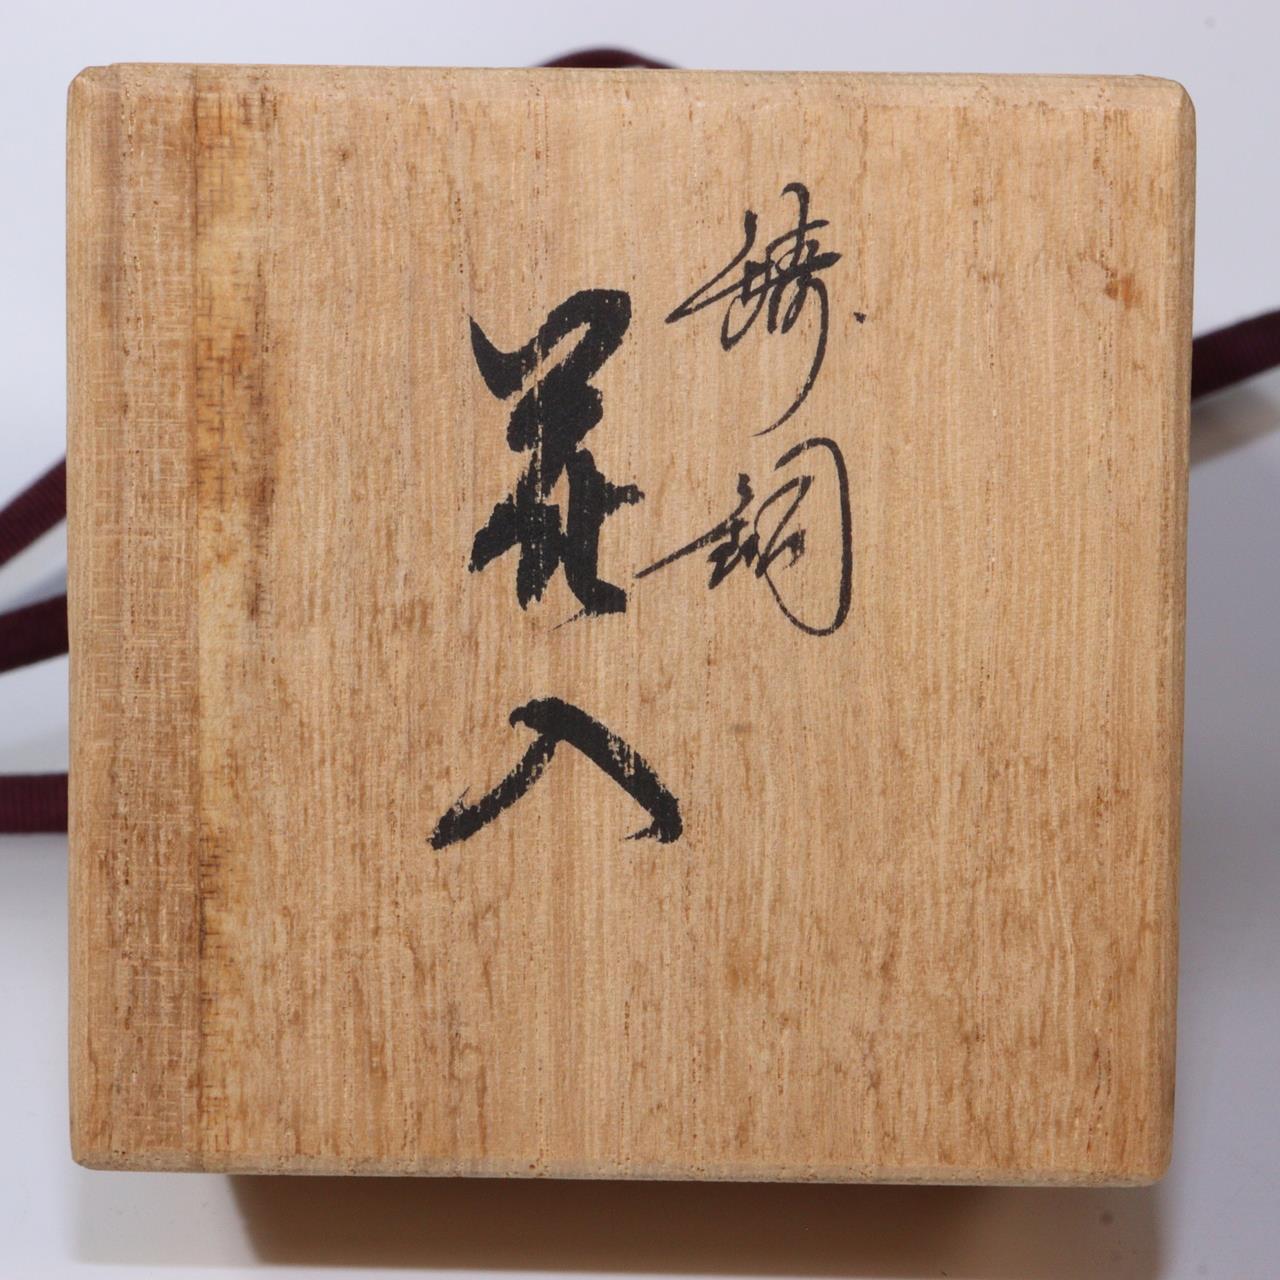 鋳銅
花入